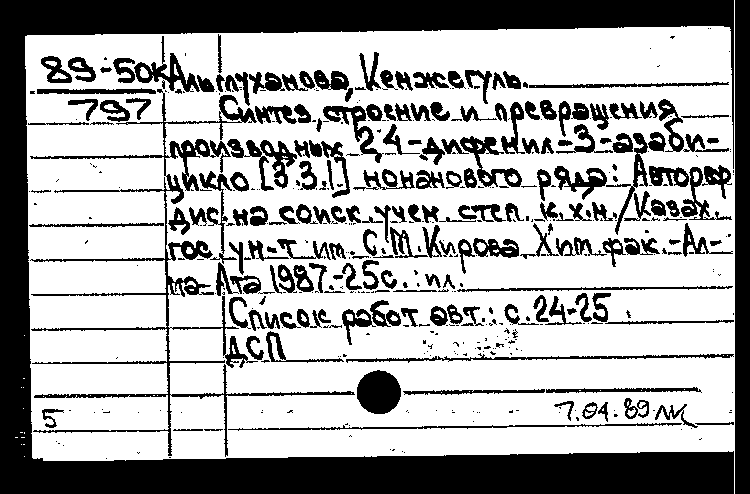 89-50к Альмуханова, Кенжегуль.
797 Синтез, строение и превращения
производных 2,4-дифенил-3-азаби-
цикло [3.3.1] нонанового ряда: Автореф
дис. на соиск. учен. степ. к.х.н. / Казах.
гос. ун-т им. С.М. Кирова. Хим. фак. -Ал-
ма-Ата 1987.-25с.: ил.
Список работ авт.: с. 24-25
ДСП
5
7.04.89